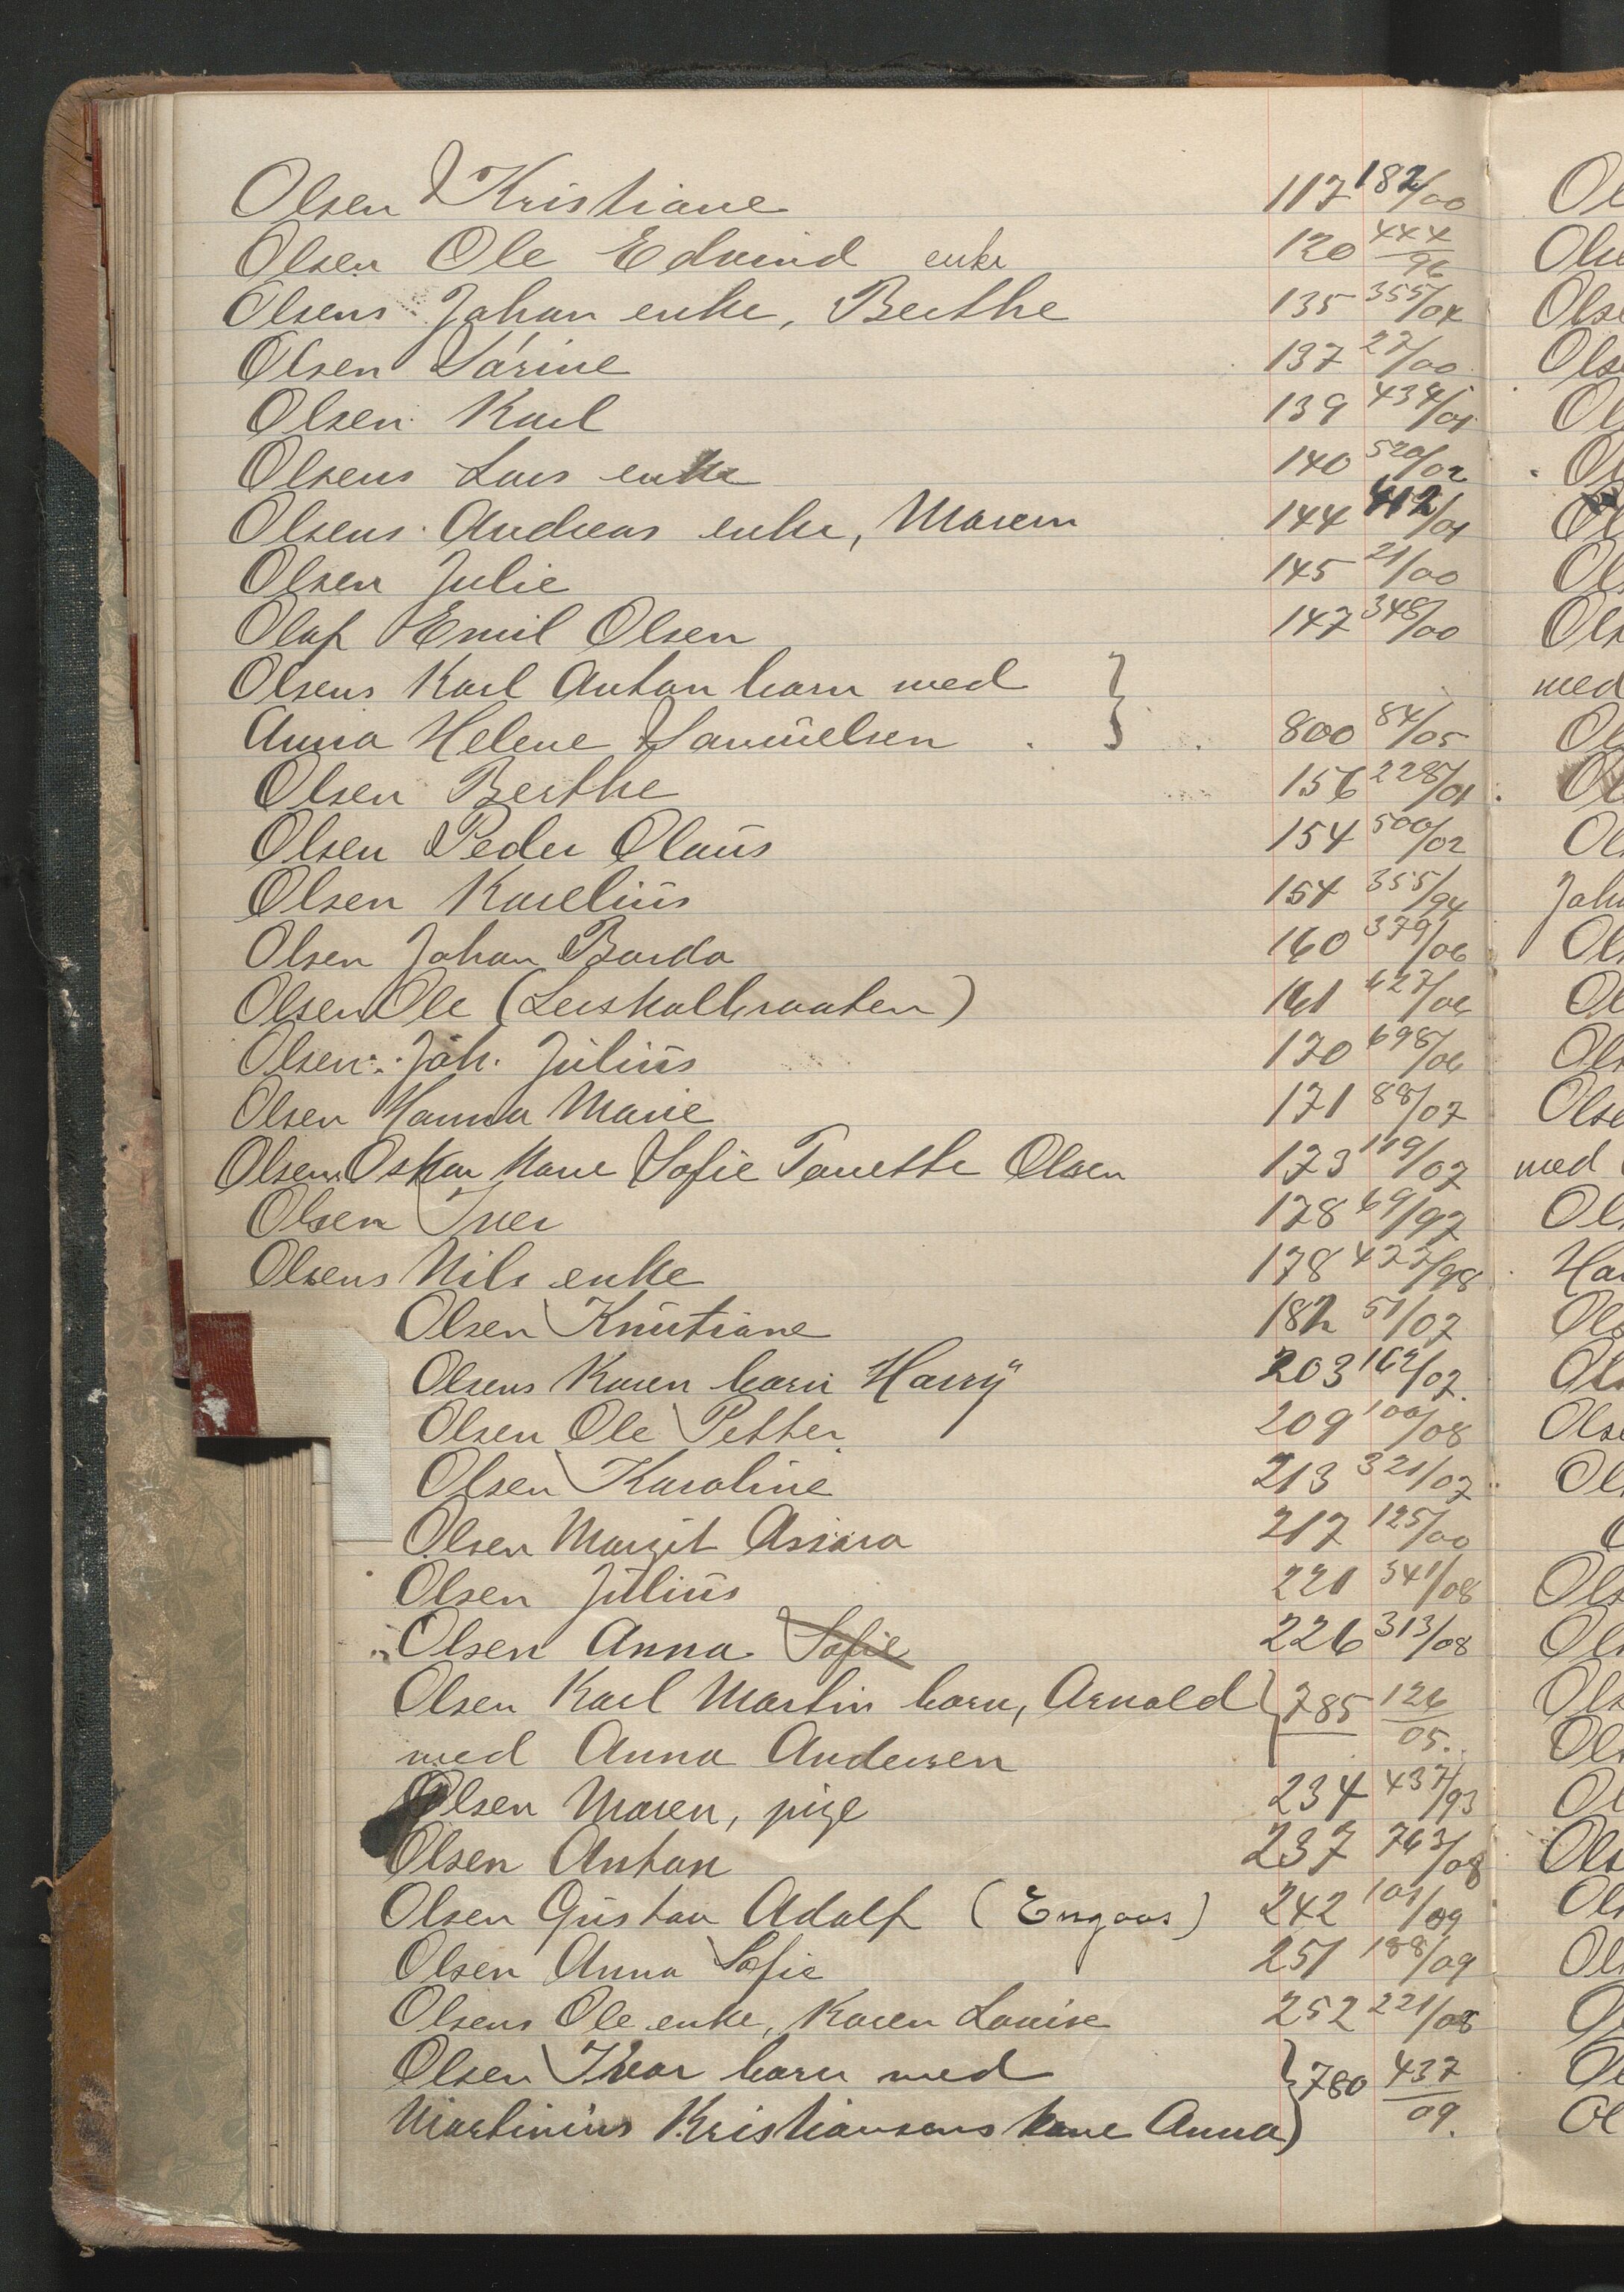 Olsen Kristiane 117 182/00
Olsen Ole Edvind enke 120 444/96
Olsens Johan enke, Berthe 135 355/04
Olsen Sørine 137 27/00
Olsen Karl 139 434/01
Olsens Lars enke 140 520/02
Olsens Andreas enke, Maren 144 412/01
Olsen Julie 145 21/00
Olaf Emil Olsen 147 348/00
Olsens Karl Anton barn med }
Anna Helene Samuelsen 800 84/05
Olsen Berthe 156 228/01
Olsen Peder Olaus 154 500/02
Olsen Karelius 154 355/94
Olsen Johan Barda 160 379/06
Olsen Ole 161 627/06
Olsen Joh. Julius 170 698/06
Olsen Hanna Marie 171 88/07
Olsen Oskar Kone Sofie Tanette Olsen 173 119/07
Olsen Iver 178 69/97
Olsens Nils enke 178 427/98
Olsen Knutiane 182 51/07
Olsens Karen barn Harry 203 162/07
Olsen Ole Petter 209 100/08
Olsen Karoline 213 321/07
Olsen Margit Assara 217 125/00
Olsen Julius 221 541/08
Olsen Anna Sofie 226 313/08
Olsen Karl Martin barn, Arnold } 785 126/05.
med Anna Andersen
Olsen Maren, pige 234 437/93
Olsen Anton 237 763/08
Olsen Gustav Adolf (Engaas) 242 101/09
Olsen Anna Sofie 251 188/09
Olsens Ole enke, Karen Louise 252 221/08
Olsen Ivar barn med } 780 437/09.
Martinius Kristiansens kone Anna)